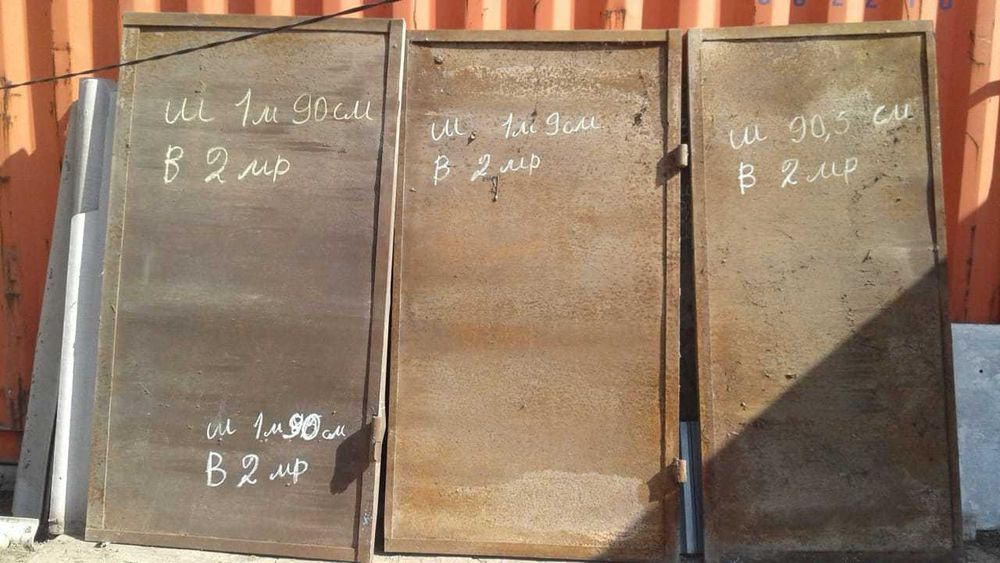 ш 1м 90см
В 2 мр
ш 1м 90 см
В 2 мр
ш 1м 9см
В 2 мр
ш 90,5 см
В 2 мр